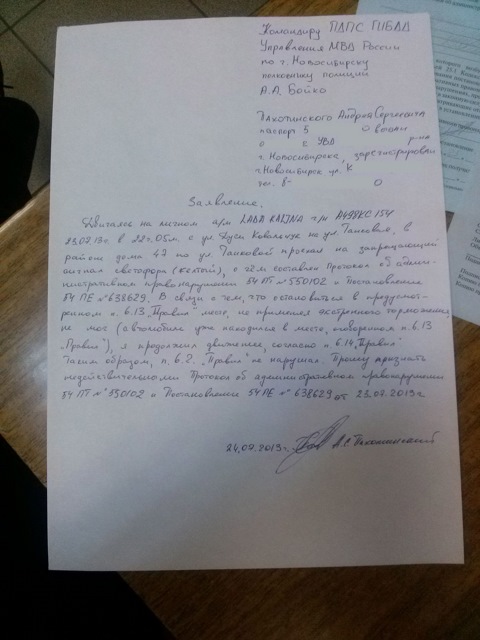 Командиру ПДПС ГИБДД
Управления МВД России
по г. Новосибирску
полковнику полиции
А.А. Бойко
Пахотинского Андрея Сергеевича
паспорт 5 0 выдан
0 с УВД р-на
г. Новосибирска, зарегистрирован
г. Новосибирск ул. К
тел. 8- 0
Заявление.
Двигаясь на личном а/м LADA KALINA г/н А498КС 154
23.07.13г. в 22ч.05м. с ул. Дуси Ковальчук на ул. Танковую, в
районе дома 47 по ул. Танковой проехал на запрещающий
сигнал светофора (желтый), о чём составлен Протокол об адми-
нистративном правонарушении 54 ПТ №550102 и Постановление
54 ПЕ №638629. В связи с тем, что остановиться в предусмот-
ренном п. 6.13 „Правил" месте, не применяя экстренного торможения,
не мог (автомобиль уже находился в месте, оговоренном п. 6.13
„Правил"), я продолжил движение, согласно п 6.14 „Правил".
Таким образом, п. 6.2. „Правил" не нарушал. Прошу признать
недействительными Протокол об административном правонарушении
54 ПТ №550102 и Постановление 54 ПЕ №638629 от 23.07.2013г.
24.07.2013г. А.С. Пахотинский